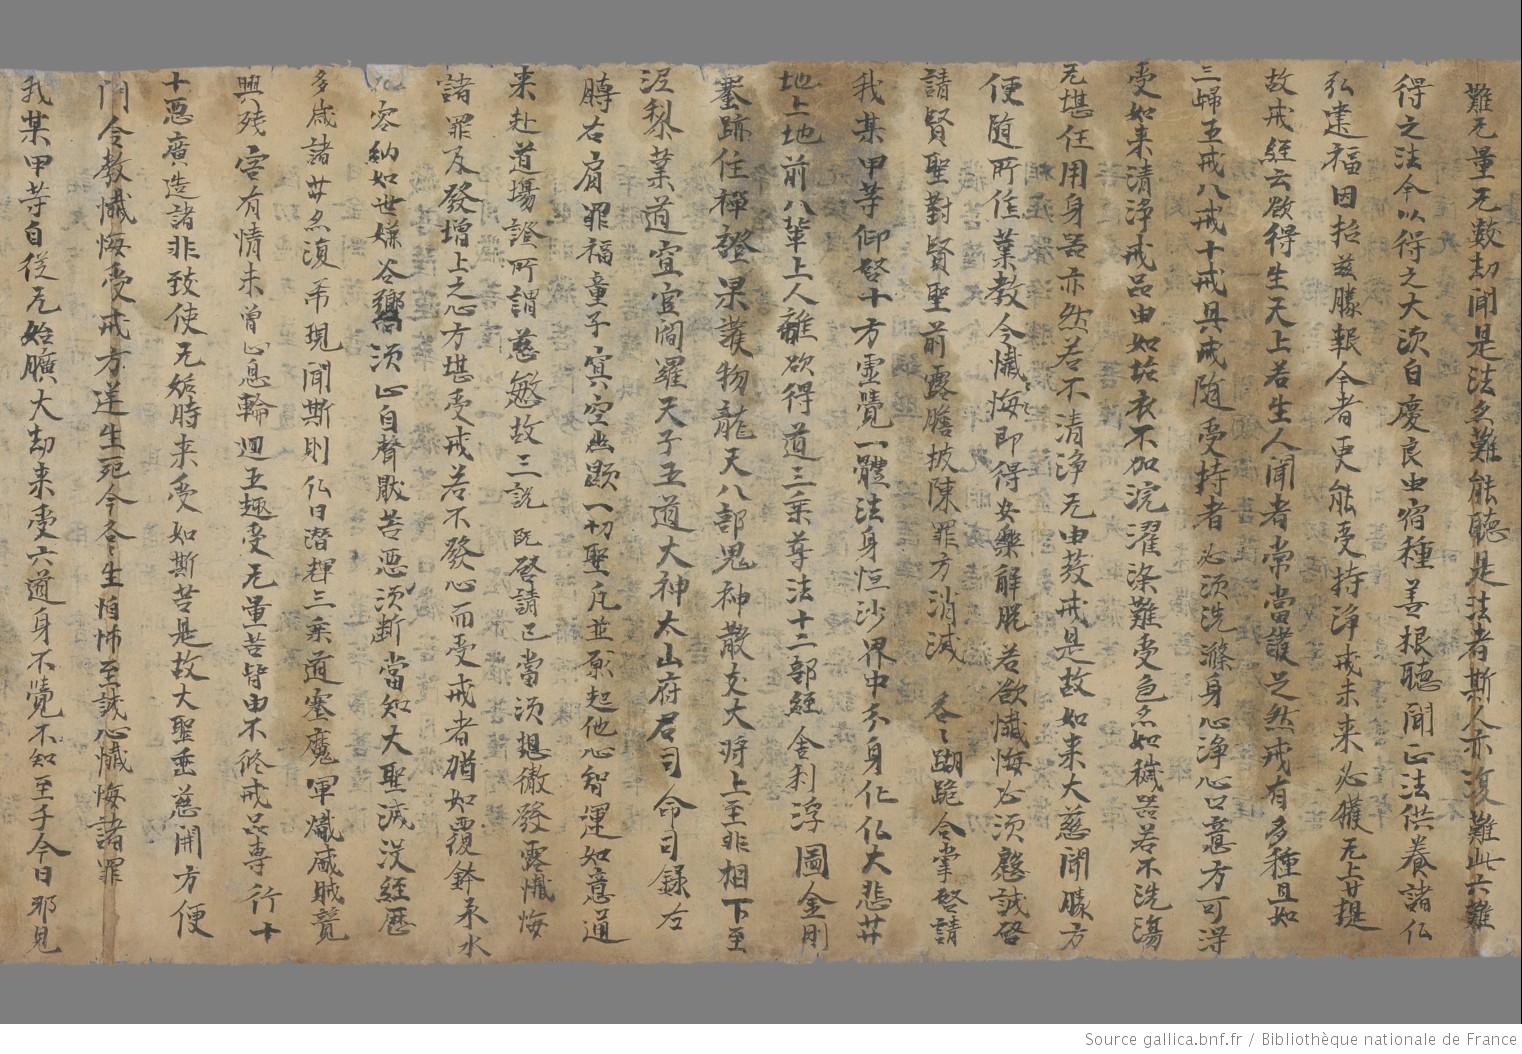 難无量无數劫聞是法亦難能聽是法者斯人亦復難此六難
得之法今以得之大須自慶良由宿種善根聽聞正法供養諸仏
弘建福因招茲勝報今者更能受持淨戒未来必獲无上菩提
故戒経云欲得生天上若生人間者常當護足然戒有多種且如
三歸五戒八戒十戒具戒随受持者必須洗滌身心淨心口意方可淂
受如来清淨戒品由如垢衣不加浣濯染難受色亦如穢器若不洗蕩
无堪任用身器亦然若不清淨无由發戒是故如来大慈開勝方
便随所住業教令懺悔即得安樂解脱若欲懺悔必須慇誠啓
請賢聖對賢聖前露膽披陳罪方消滅 各々䠒跪合掌啓請
我某甲等仰啓十方霊覺一體法身恒沙界中分身化仏大悲菩
地上地前八輩上人離欲得道三乘尊法十二部経舎利浮圖金剛
蜜跡住禪證果護物龍天八部鬼神散支大将上至非相下至
泥犁業道冥官閻羅天子五道大神太山府君司命司録左
膊右肩罪福童子冥空幽顕一切聖凡並願起他心智運如意通
来赴道場證所謂慈愍故三説 既啓請已當須想徹發露懺悔
諸罪及發增上之心方堪受戒若不發心而受戒者猶如覆鉢承水
容納如世嫌谷響須正自聲猒苦惡須断當知大聖滅没経歴
多歳諸菩亦復希現聞斯則仏日潛輝三乘道塞魔軍熾盛賊競
興残害有情未曾止息輪迴五趣受无量苦皆由不修戒品専行十
十惡廣造諸非致使无始時来受如斯苦是故大聖垂慈開方便
門令教懺悔受戒方逆生死今各々生怕怖至誠心懺悔諸罪
我某甲等自従无始曠大劫来受六道身不覺不知至于今日邪見